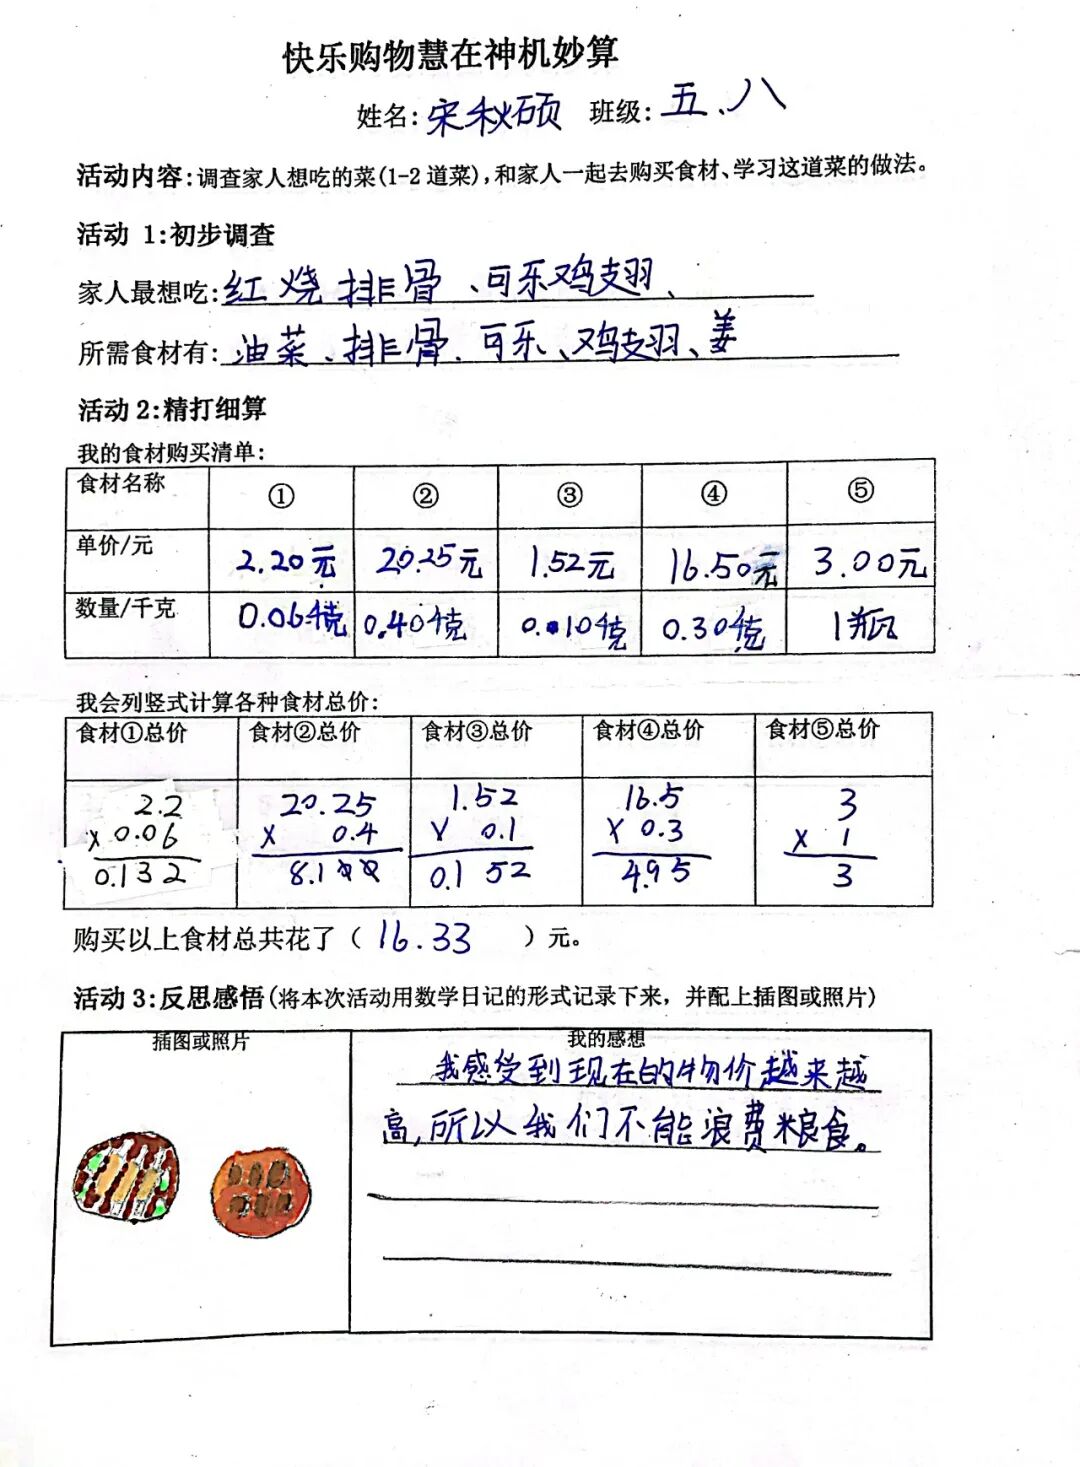 快乐购物慧在神机妙算
姓名:宋秋硕 班级:五、八
活动内容:调查家人想吃的菜(1-2道菜),和家人一起去购买食材、学习这道菜的做法。
活动 1:初步调查
家人最想吃:红烧排骨、可乐鸡翅、
所需食材有:油菜、排骨、可乐、鸡翅、姜
活动2:精打细算
我的食材购买清单:
食材名称 ① ② ③ ④ ⑤
单价/元 2.20元 20.25元 1.52元 16.50元 3.00元
数量/千克 0.06千克 0.40千克 0.10千克 0.30千克 1瓶
我会列竖式计算各种食材总价:
食材①总价 食材②总价 食材③总价 食材④总价 食材⑤总价
2.2 20.25 1.52 16.5 3
×0.06 × 0.4 × 0.1 × 0.3 × 1
0.132 8.100 0.152 4.95 3
购买以上食材总共花了( 16.33 )元。
活动3:反思感悟(将本次活动用数学日记的形式记录下来,并配上插图或照片)
插图或照片 我的感想
我感受到现在的物价越来越
高,所以我们不能浪费粮食。